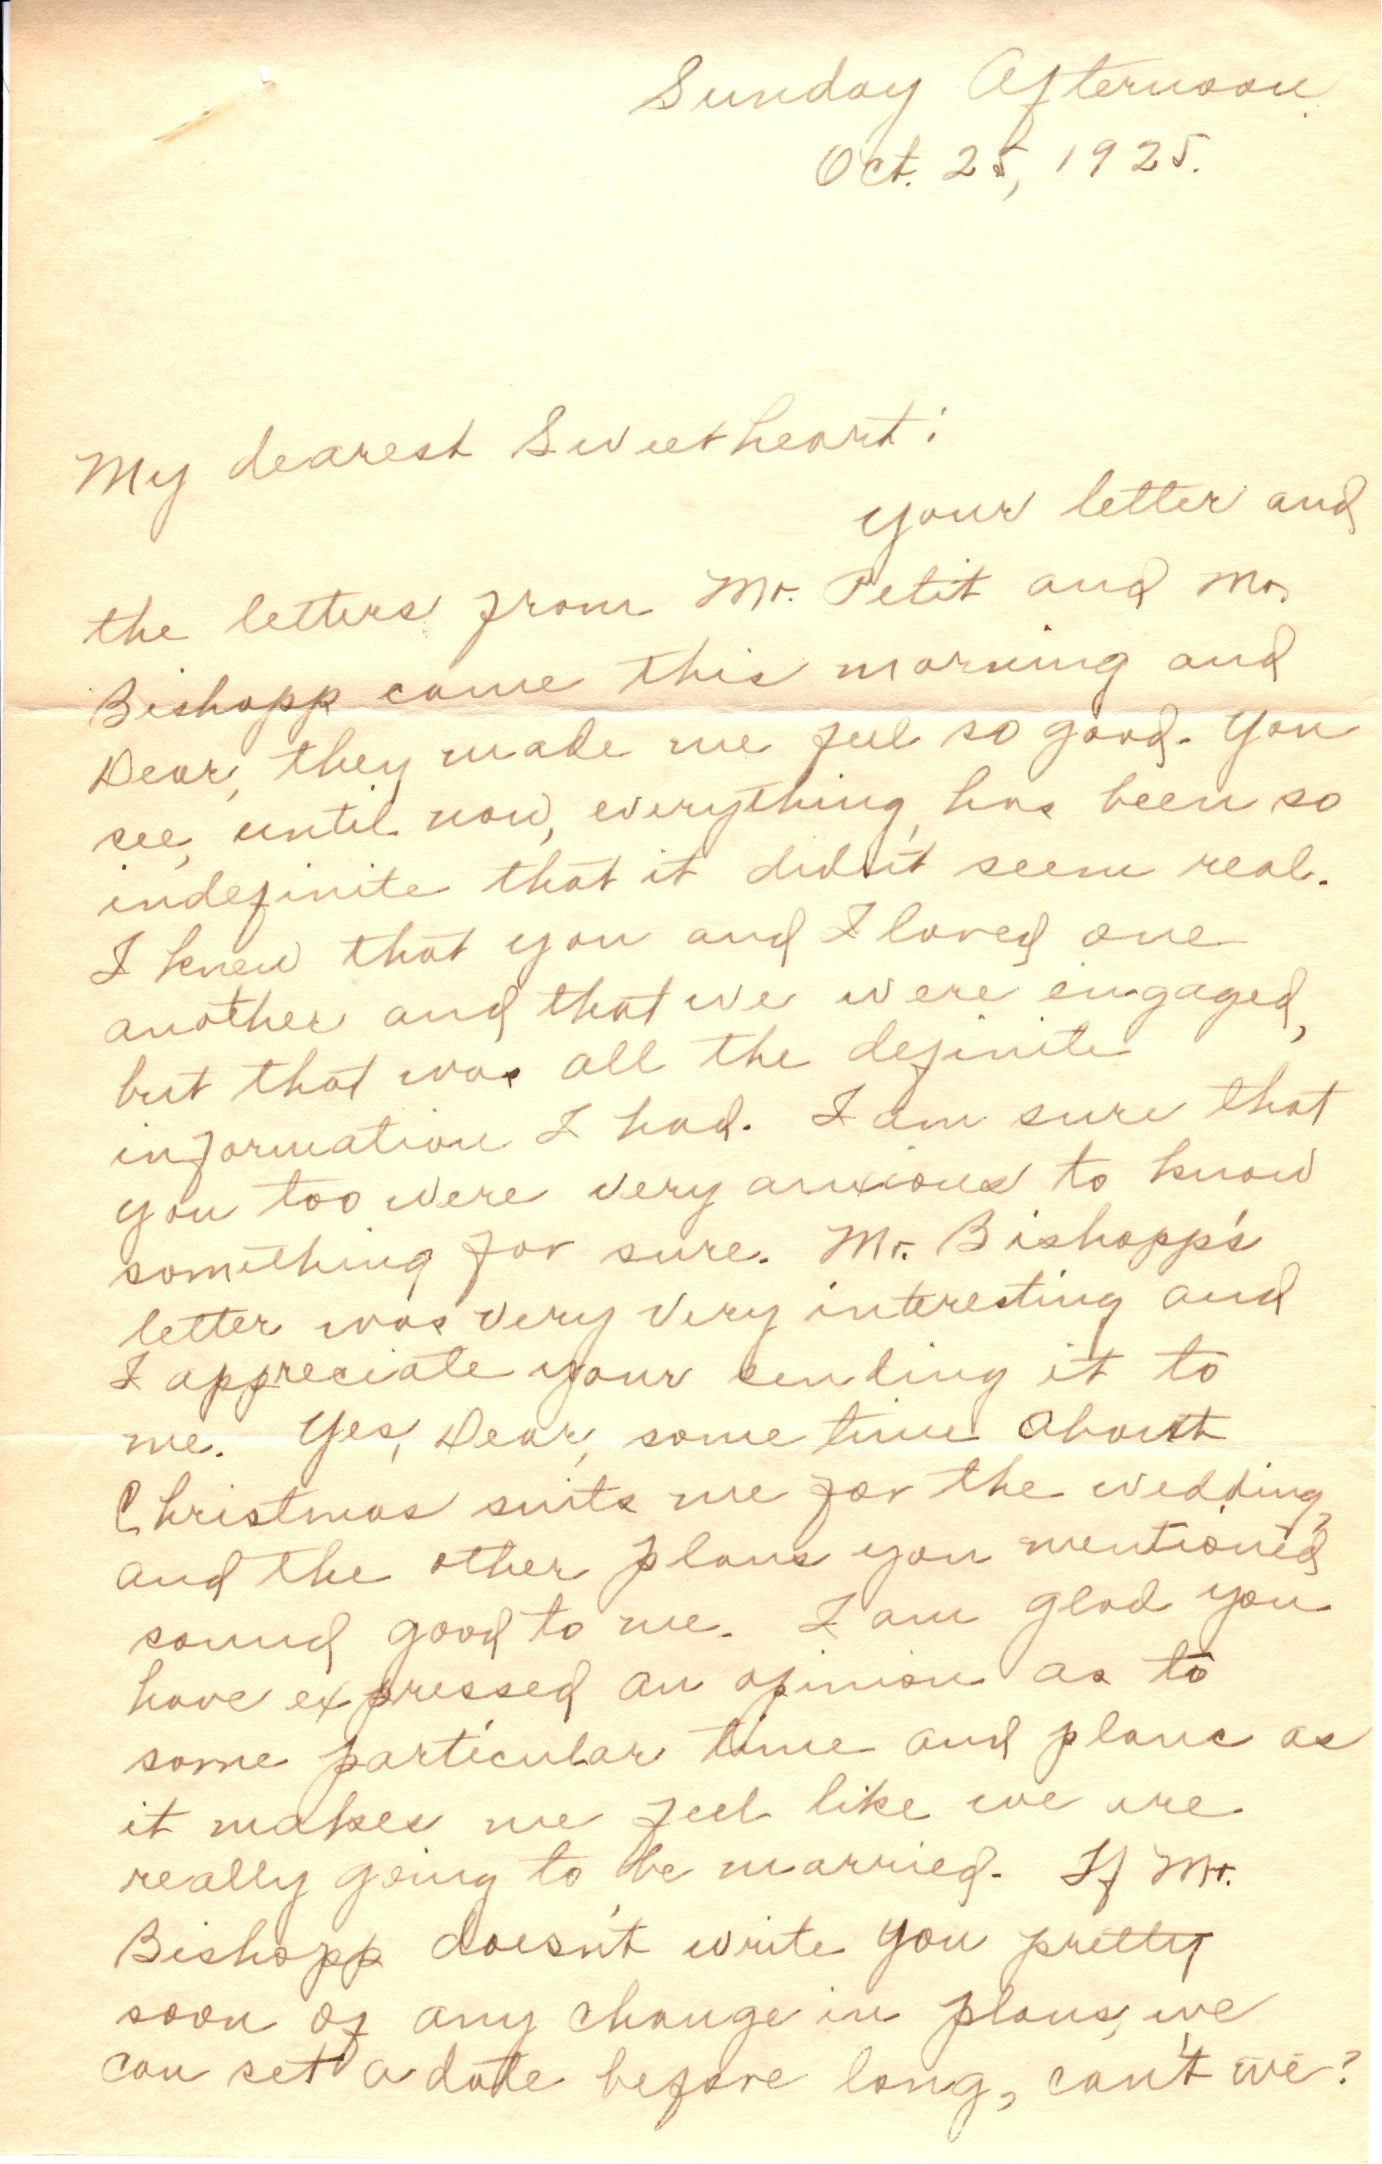 Sunday Afternoon
Oct. 25, 1925.
My dearest Sweetheart:
Your letter and
the letters from Mr. Petit and Mr.
Bishopp came this morning and
Dear, they made me feel so good. You
see, until now, everything has been so
indefinite that it didn't seem real.
I knew that you and I loved one
another and that we were engaged,
but that was all the definite
information I had. I am sure that
you too were very anxious to know
something for sure. Mr. Bishopp's
letter was very very interesting and
I appreciate your sending it to
me. Yes, Dear, some time about
Christmas suits me for the wedding,
and the other plans you mentioned
sound good to me. I am glad you
have expressed an opinion as to
some particular time and plans as
it makes me feel like we are
really going to be married. If Mr.
Bishopp doesn't write you pretty
soon of any change in plans, we
can set a date before long, can't we?